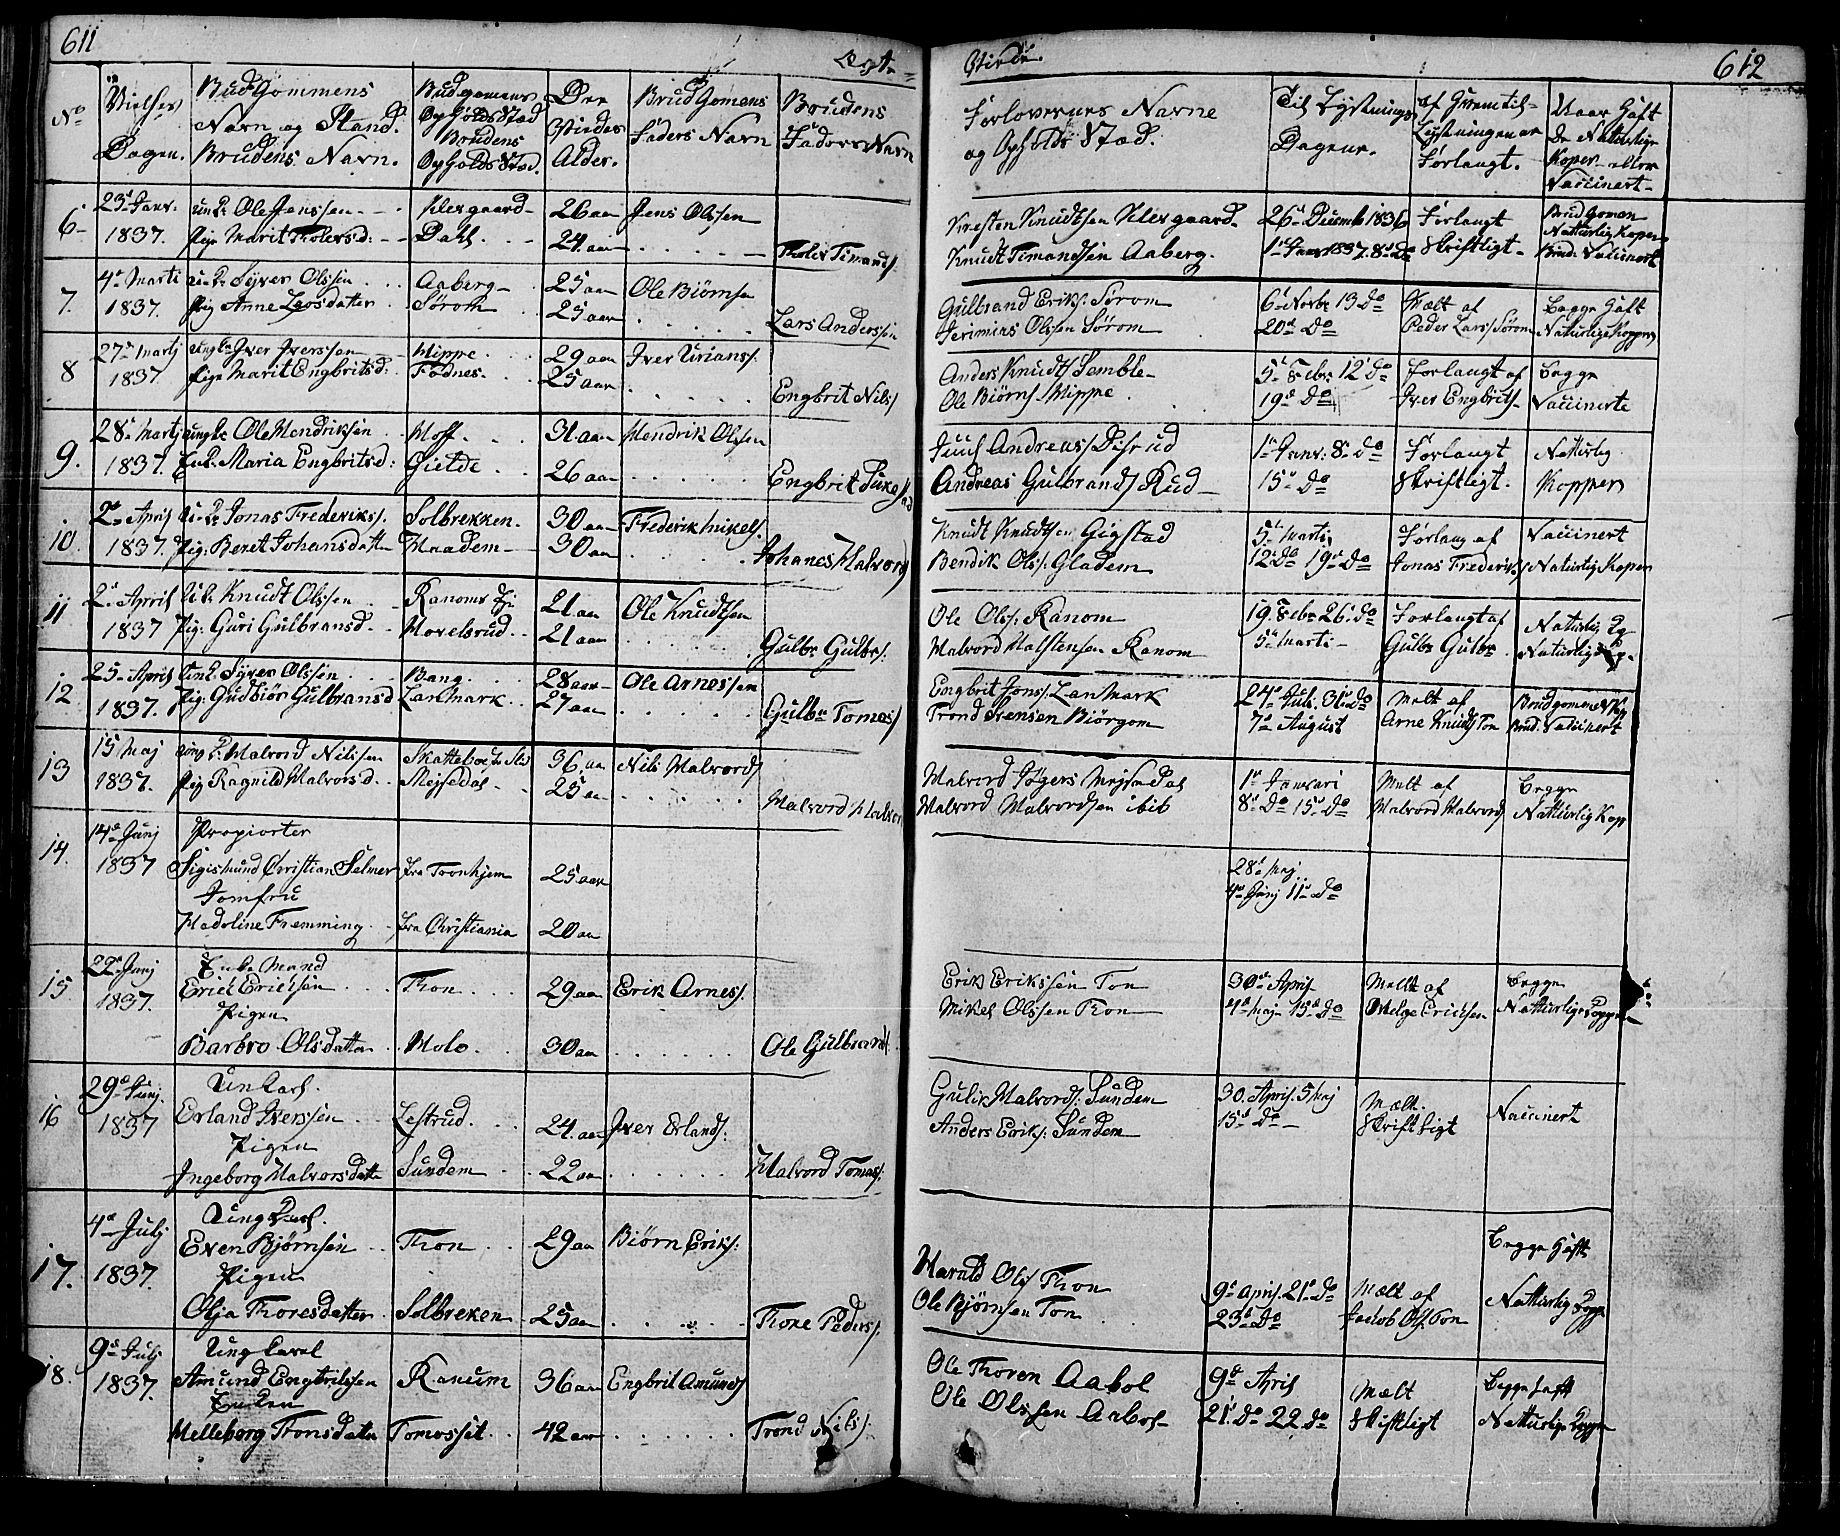 611
Ægte-
Viede.
612
No
Vielses
Dagen.
BrudGommens
Navn og Stand.
Brudens Navn.
Brudgomens
OpHoldsStæd
Brudens
OpHolds Stæd.
Der
Viedes
Alder.
BrudGomens
Faders Navn
Brudens
Faders Navn
Forlovernes Navne
og Opholds Stæd.
Til Lysnings
Dagene.
af Hvem til-
Lysningen er
Forlangt.
Naar Haft
De Naturlige
Koper eller
Vaccinert
6
23d Janr.
1837.
Ole Jenssen
Pige Marit Tholersd:
Klevgaard
Dahl
26 aar
24 aar
Jens Olssen
Tholer Timands
Kresten Knudtsen Klevgaard
Knudt Timandsen Aaberg.
26d Decemb 1836
1d Janr 1837. 8d Do
Forlangt
Skriftligt
BrudGomen
Naturlig Koper
Brud. Vaccinert
7
4d Marti
1837.
Syver Olssen
Pig Anne Larsdatter
Aaberg
Sørom
25 aar
25 aar
Ole Biørnse
Lars Anderssen
Gulbrand Eriks. Sørom
Jerimias Olssen Sørom
6d Novbr 13 Do
20d Do
Mælt af
Peder Lars/ Sørom
Begge Haft
Naturlige Kopper
8
27d Martj
1837
Iver Iverssen
Pige Marit Engbritsd:
Hippe
Fødnes
29 aar
25 aar
Iver Urians/.
Engbrit Nils/
Anders Knudts/ Semble
Ole Biørns/ Hippe
5d Febr. 12 Do
19d Do
Forlangt af
Iver Engbrits
Begge
Vaccinerte
9.
28d Martj
1837.
Ole Hendriksen
Enk. Maria Engbritsd:
Hoff
Gielde
31 aar
26 aar
Hendrik Olssen
Engbrit
Juul Andreass/ Disrud
Andreas Gulbrands/ Rud
1d Janr. 8d Do
15d Do
Forlangt
Skriftligt.
Natturlig
Kopper
10.
2d April
1837.
Jonas Frederiks/.
Pig: Beret Johansdatter
Solbrekken.
Haadem
30 aar
30 aar
Frederik Mikels.
Johanes Halvord/
Knudt Knudtsen Gigstad
Bendik Ols/. Gladem
5d Marti
12 Do 19d Do
Forlang af
Jonas Frederiks/
Vaccinert
Naturlig Koper
11
2d April
1837
Knudt Olssen
Pig: Guri Gulbransd.
Ranoms
Hovelsrud
21 aar
21 aar
Ole Knudtsen
Gulbr Gulbr/.
Ole Ols/. Ranom
Halvord Halstensen Ranom
19. Febr 26. Do
5d Marti
Forlangt af
Gulbr Gulbr.
Naturlig
Naturlige
12
25d April
1837.
Syver Olssen
Pig: Gudbiør Gulbransd
Bang
Lanmark
28 aar
27 aar
Ole Arnessen
Gulbr Tomes/
Engbrit Jons/. Lanmark
Trond Svensen Biørgom
24d Juli. 31d Do
7d August
Melt af
Arne Knuds Ton
Brudgommen
Brud. Vaccinert
13
15 Maj
1837.
Halvord Nilssen
Pig Ragnild Halvorsd
Skattebo
Mejsedal
36 aar
25 aar
Nils Halvords/
Halvord Halvor
Halvord
Halvord Halvordsen ibib
1d Januari
8d Do 15d Do
Melt af
Halvord Halvords
Begge
Natturlig Kop
14.
14d Junj
1837
Propiorter
Sigismund Christian Selmer
Jomfru
Madeline Fremming
fra Tronhjem
fra Christiania
25 aar
20 aar
28d Maj
4d Junj 11d Do
15
22d Junj
1837.
Enke Mand
Erick Ericksen
Pigen
Barbro Olsdatter
Thon
Molo
29 aar
30 aar
Erik Arnes/.
Ole Gulbrands/
Erik Erikssen Ton
Mikel Olssen Thon
30d April
4d Maj 15d Do
Meldt af
Helge Ericksen
Begge
Natturlige Kopper
16
29d Junj.
1837
Unkarl.
Erland Iverssen
Pigen
Ingeborg Halvorsdatter
Lestrud.
Sundem
24. aar
22 aar
Iver Erlands/.
Halvord Tomas/.
Gulik Halvords/. Sundem
Anders Eriks/. Sundem
30. April 5 Maj
15d Do
Mælt.
Skriftligt
Vaccinert
17.
4d Julj
1837.
Ungkarl.
Even Bjørnsen
Pigen
Olja Thoresdatter
Thon
Solbreken
29 aar
25 aar
Biørn Eriks/.
Thore Peders/.
Harald Ols/ Thon
Ole Bjørnsen Ton
9d April. 21d Do
23d Do
Mælt af
Jacob Ols/. Ton
Begge Haft
Natturlig Koppe
18.
9d Julj
1837.
Ungkarl
Amund Engbritssen
Enken
Melleborg Tronsdatter
Ranum
Tomossit
36 aar
42 aar
Engbrit Amunds/
Trond Nils/.
Ole Thoren Aabol
Ole Olssen Aabol
9d April
21d Do 22. Do
Mælt
Skriftligt
Begge Haft
Natturlige Kopper